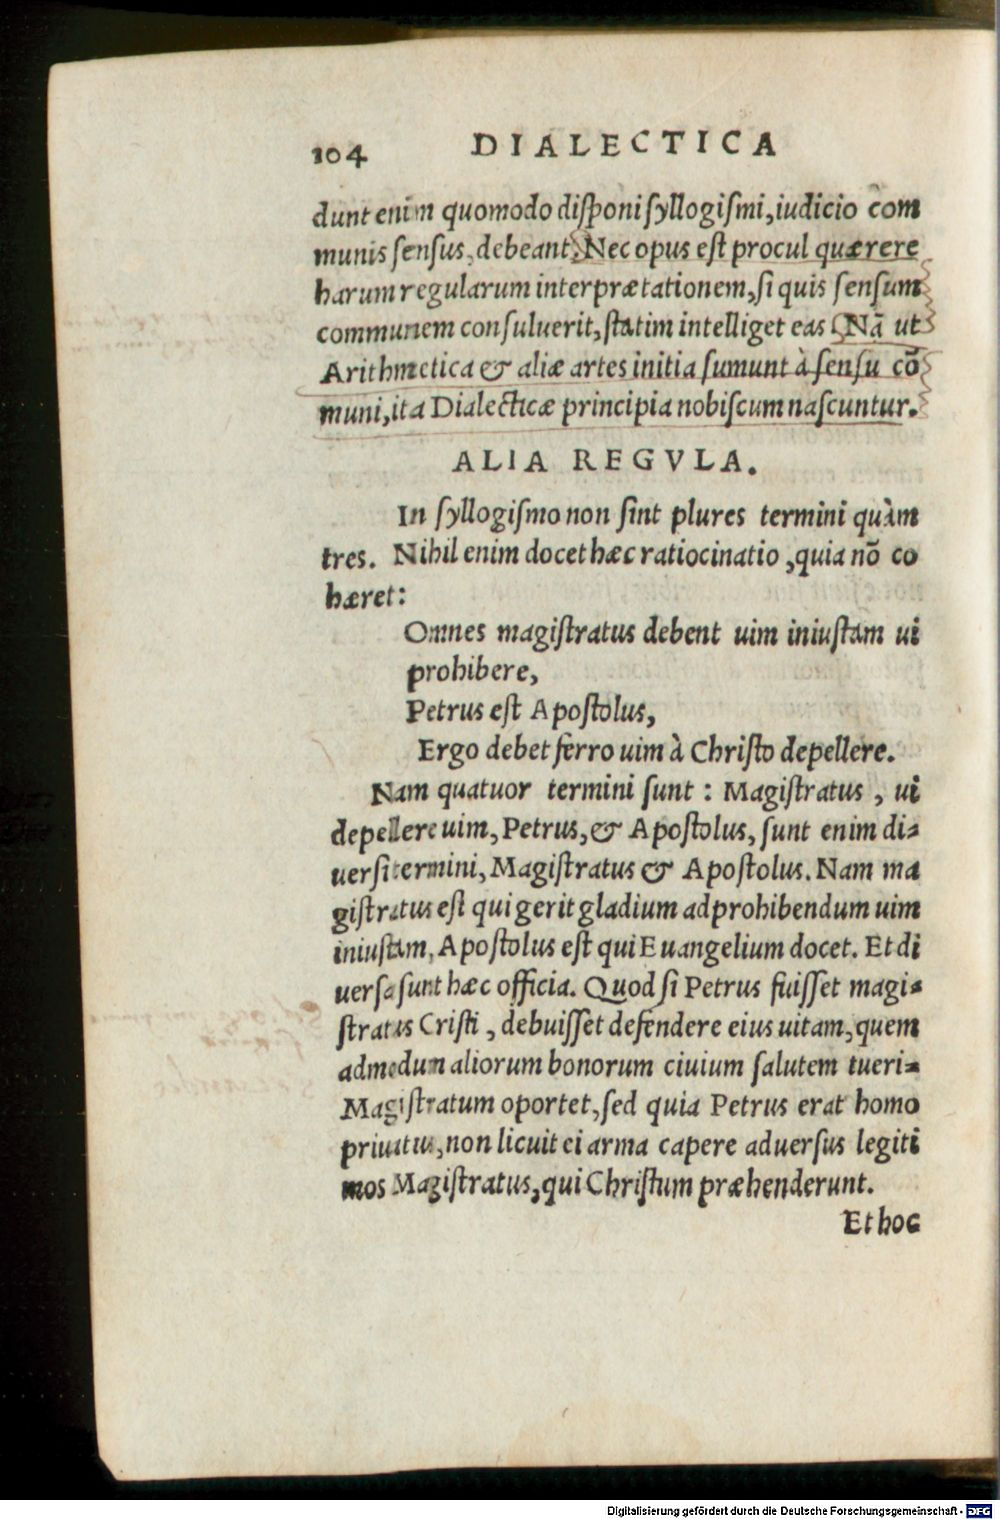 104 DIALECTICA
dunt enim quomodo disponi syllogismi, iudicio com
munis sensus, debeant. Nec opus est procul quærere
harum regularum interprætationem, si quis sensum
communem consuluerit, statim intelliget eas. Nā ut
Arithmetica & aliæ artes initia sumunt à sensu cō
muni, ita Dialecticæ principia nobiscum nascuntur.
ALIA REGVLA.
In syllogismo non sint plures termini quàm
tres. Nihil enim docet hæc ratiocinatio, quia nō co
hæret:
Omnes magistratus debent uim iniustam ui
prohibere,
Petrus est Apostolus,
Ergo debet ferro uim à Christo depellere.
Nam quatuor termini sunt: Magistratus, ui
depellere uim, Petrus, & Apostolus, sunt enim di-
uersi termini, Magistratus & Apostolus. Nam ma
gistratus est qui gerit gladium ad prohibendum uim
iniustam, Apostolus est qui Euangelium docet. Et di
uersa sunt hæc officia. Quod si Petrus fuisset magi-
stratus Cristi, debuisset defendere eius uitam, quem
admodum aliorum bonorum ciuium salutem tueri-
Magistratum oportet, sed quia Petrus erat homo
priuatus, non licuit ei arma capere aduersus legiti
mos Magistratus, qui Christum præhenderunt.
Et hoc
Digitalisierung gefördert durch die Deutsche Forschungsgemeinschaft - DFG